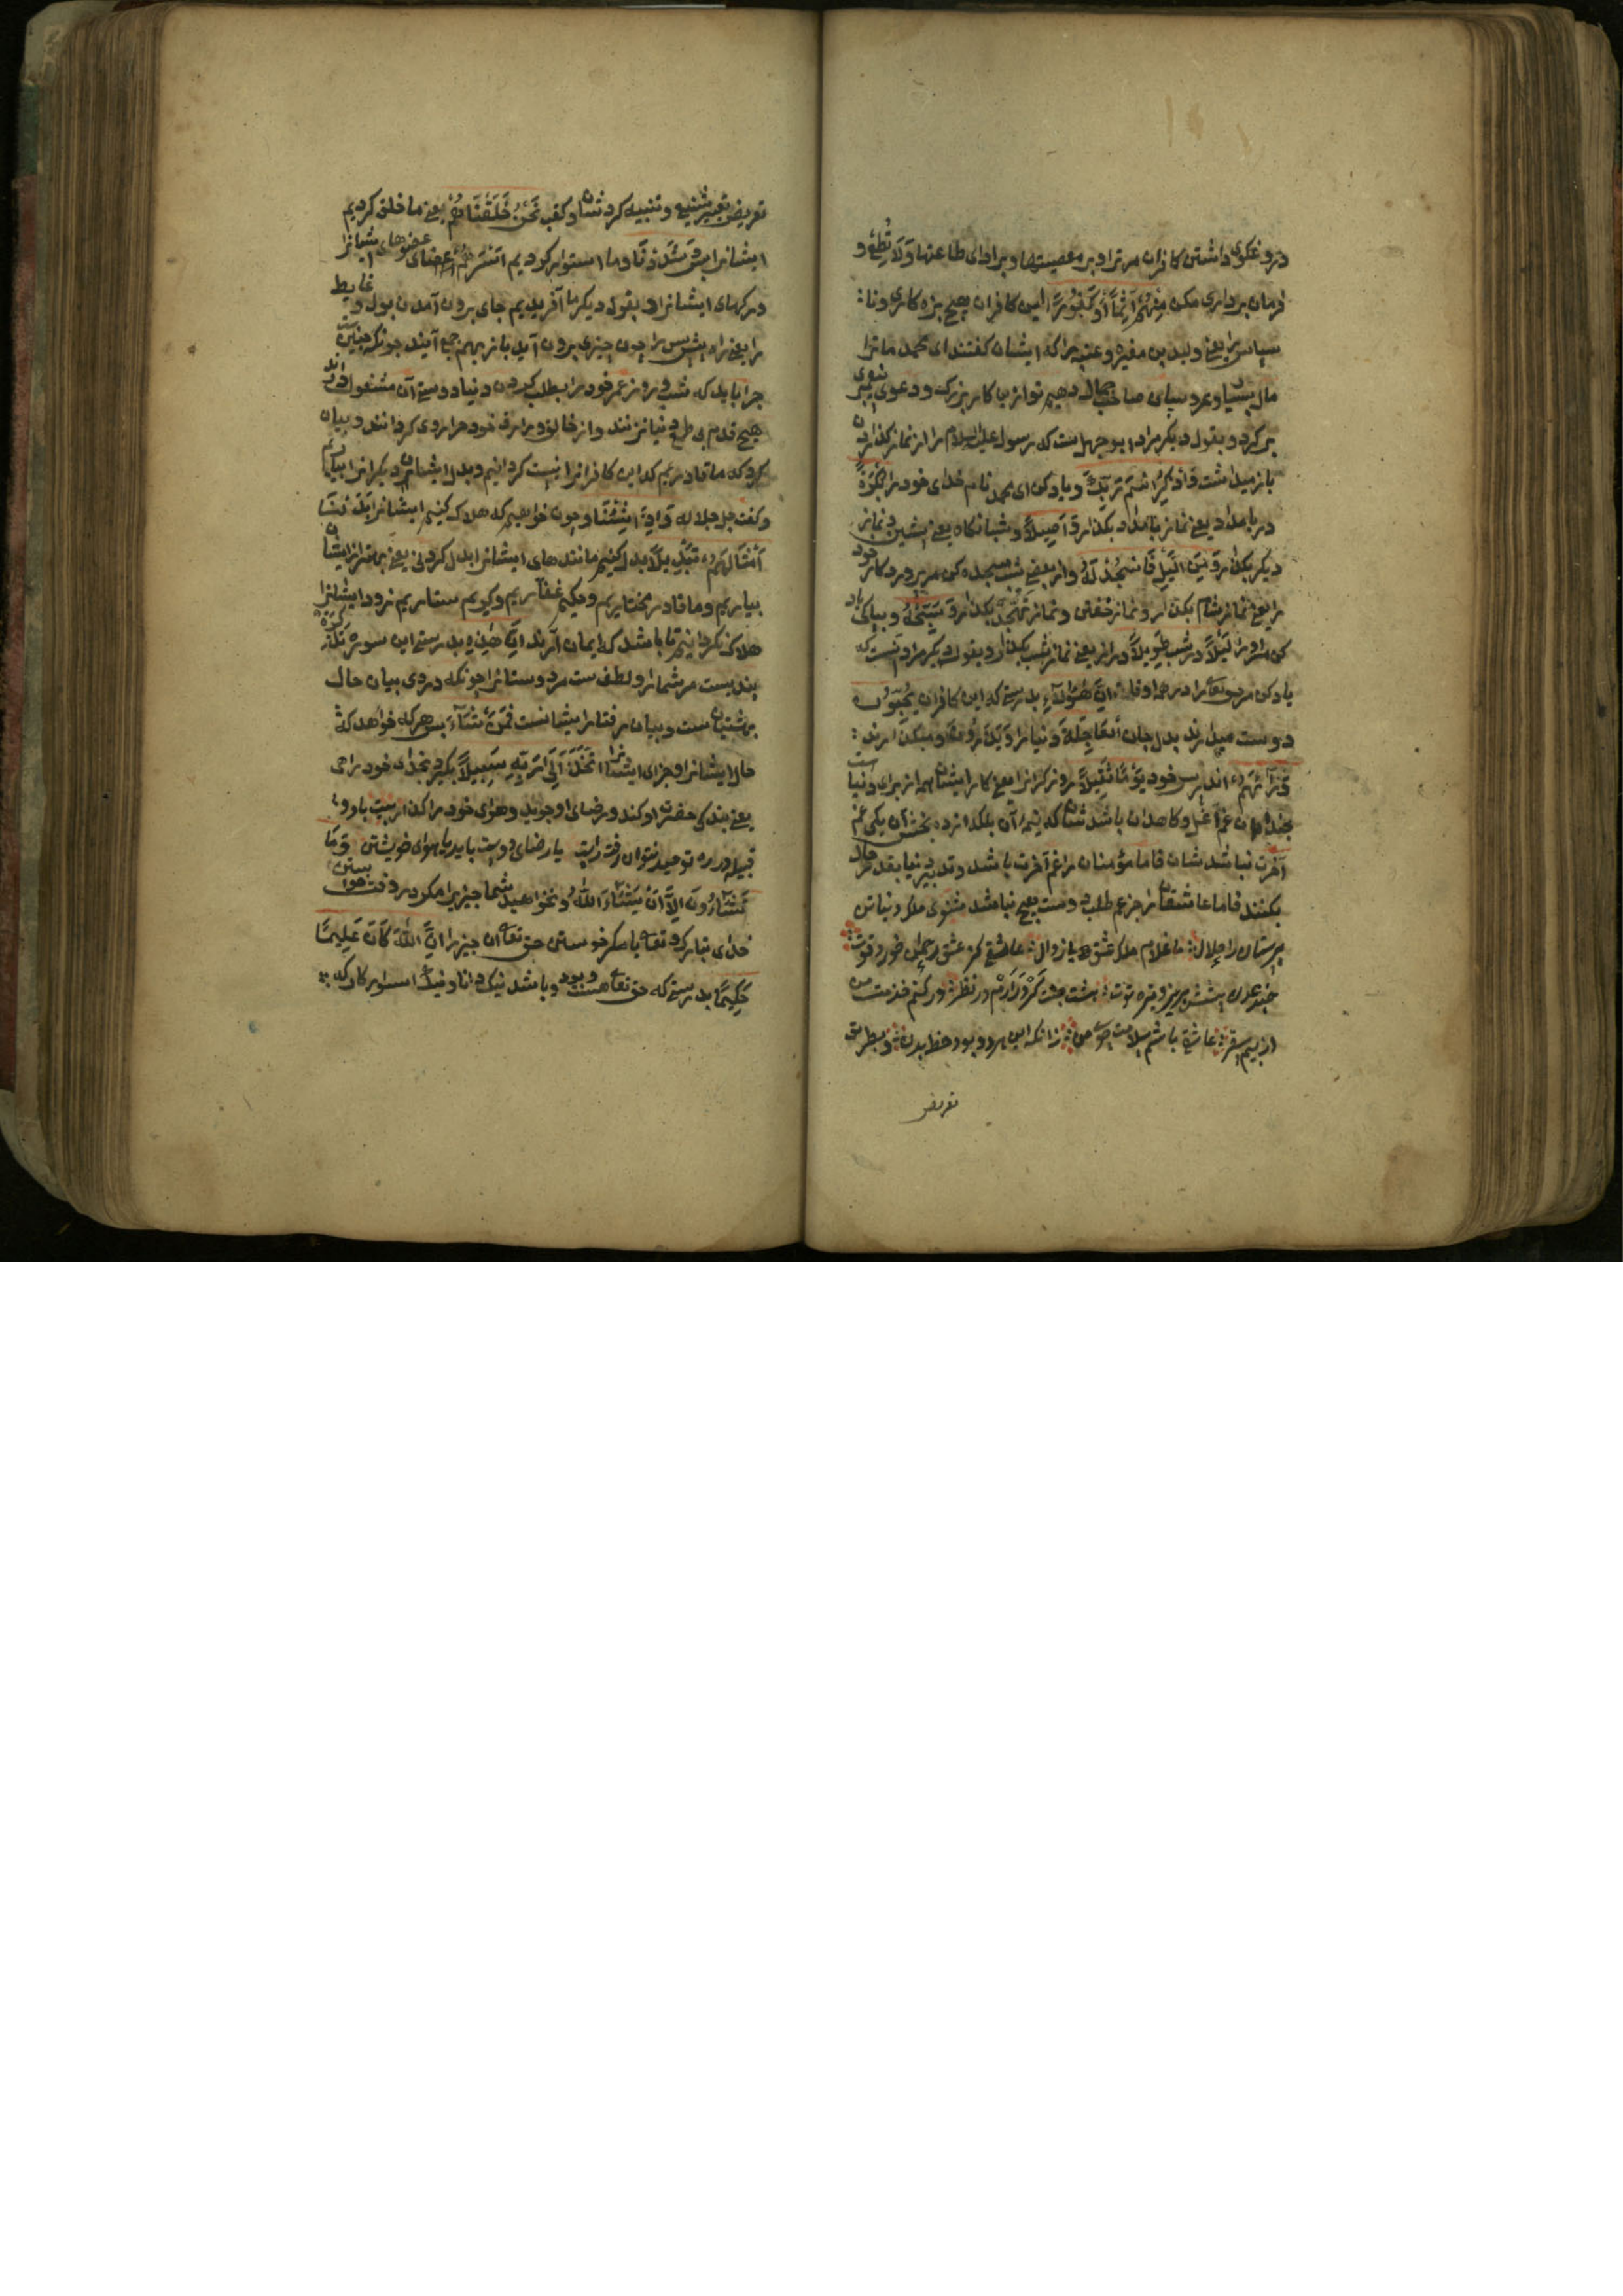 دروغکوی داشتن کافران مر ترا و بر معصیتها و بر ادای طاعتها وَلَا تُطِعْ و
فرمان برداری مکن مِنْهُمْ آثِمًا أَوْ كَفُورًا ازین کافران هیچ بزه کاری و نا
سپاس را یعنی ولید بن مغیره و عتبه را که ایشان کفتند ای محمد ما ترا
مال بسیار و عروسیای صاحب جمال دهیم تو ازین کار بزرک و دعوی پیغمبری
برکرد و بقول دیکر مراد ابوجهلست که رسول علیه السلام را از نماز کذاردن
باز میداشت وَاذْكُرِ اسْمَ رَبِّكَ و یاد کن ای محمد نام خدای خود را بُكْرَةً
در بامداد یعنی نماز بامداد بکذار وَأَصِيلًا و شبانکاه یعنی پیشین و نماز
دیکر بکذار وَمِنَ اللَّيْلِ فَاسْجُدْ لَهُ و از بعضی شب سجده کن مر پروردکار خود
را یعنی نماز شام بکذار و نماز خفتن و نماز تهجد بکذار وَسَبِّحْهُ و بپاکی یاد
کن مر او را لَيْلًا در شب طَوِيلًا دراز یعنی نماز شب بکذار و بقول دیکر مراد آنست که
یاد کن مر حق تعالی را در همه اوقات إِنَّ هَؤُلَاءِ بدرستی که این کافران يُحِبُّونَ
دوست میدارند بدل جان الْعَاجِلَةَ دنیا را وَيَذَرُونَ و میکذارند
وَرَاءَهُمْ اندر پس خود يَوْمًا ثَقِيلًا روز کران را یعنی کار ایشان همه از برای دنیا است
آخرت نباشد شان فاما مؤمنان را غم آخرت باشد و تدبیر دنیا بقدر حال
بکنند فاما عاشقان را جز غم طلب دوست هیچ نباشد مثنوی ملک دنیا تن
پرستان را حلال ما غلام ملک عشق بی زوال عاشقی کز عشق رحمان خورد قوت
صد بدن پیشش نیرزد تره توت هشت جنت کر درآرم در نظر ور کنم خدمت من
از بیم سقر عاشقی باشم سلامت جوی من زانکه این هر دو بود حظ بدن و بطریق
تعریض
تعریض تعبیر تشنیع و تنبیه کرد شان و کفت نَحْنُ خَلَقْنَاهُمْ یعنی ما خلق کردیم
ایشانرا وَشَدَدْنَا و ما استوار کردیم أَسْرَهُمْ اعضای عضوهای ایشانرا
و رکهای ایشانرا و بقول دیکر ما آفریدیم جای برون آمدن بول و غایط
را یعنی راه پیش پس را چون چیزی برون آید باز بهم می آیند چونکه چنین است
چرا باید که شب و روز عمر خود را بطلب کردن دنیا و دوستی آن مشغول دارند
هیچ قدم بی طمع دنیا نزنند و از خالق و رازق خود مر روی کردانند و بیان
کرد که ما قادریم که این کافرانرا نیست کردانیم و بدل ایشان دیکرانرا بیاریم
و کفت جل جلاله وَإِذَا شِئْنَا و چون خواهیم که هلاک کنیم ایشانرا بَدَّلْنَا
أَمْثَالَهُمْ تَبْدِيلًا بدل کنیم مانندهای ایشانرا بدل کردنی یعنی بهتر از ایشان
بیاریم و ما قادر مختاریم و حکیم غفاریم و کریم ستاریم زود ایشانرا
هلاک نکردانیم تا باشد که ایمان آرند إِنَّ هَذِهِ بدرستی این سوره تَذْكِرَةٌ
پندیست مر شما را و لطفست مر دوستانرا چونکه در وی بیان حال
بهشتیان ست و بیان رفتار ایشانست فَمَنْ شَاءَ پس هر که خواهد که
حال ایشانرا و جزای ایشانرا اتَّخَذَ إِلَى رَبِّهِ سَبِيلًا بکیرد بخدای خود راهی
یعنی بندکی حضرت او کند و رضای او جوید و هوای خود را کذارد بیت با دو
قبله در ره توحید نتوان رفت راست یا رضای دوست باید یا هوای خویشتن وَمَا
تَشَاءُونَ إِلَّا أَنْ يَشَاءَ اللَّهُ و نخواهید شما چیزیرا مکر در وقت خواستن
خدای تبارک و تعالی یا مکر خواستن حق تعالی آن چیز را إِنَّ اللَّهَ كَانَ عَلِيمًا
حَكِيمًا بدرستی که حق تعالی هست و بود و باشد نیک دانا و نیک استوار کار که